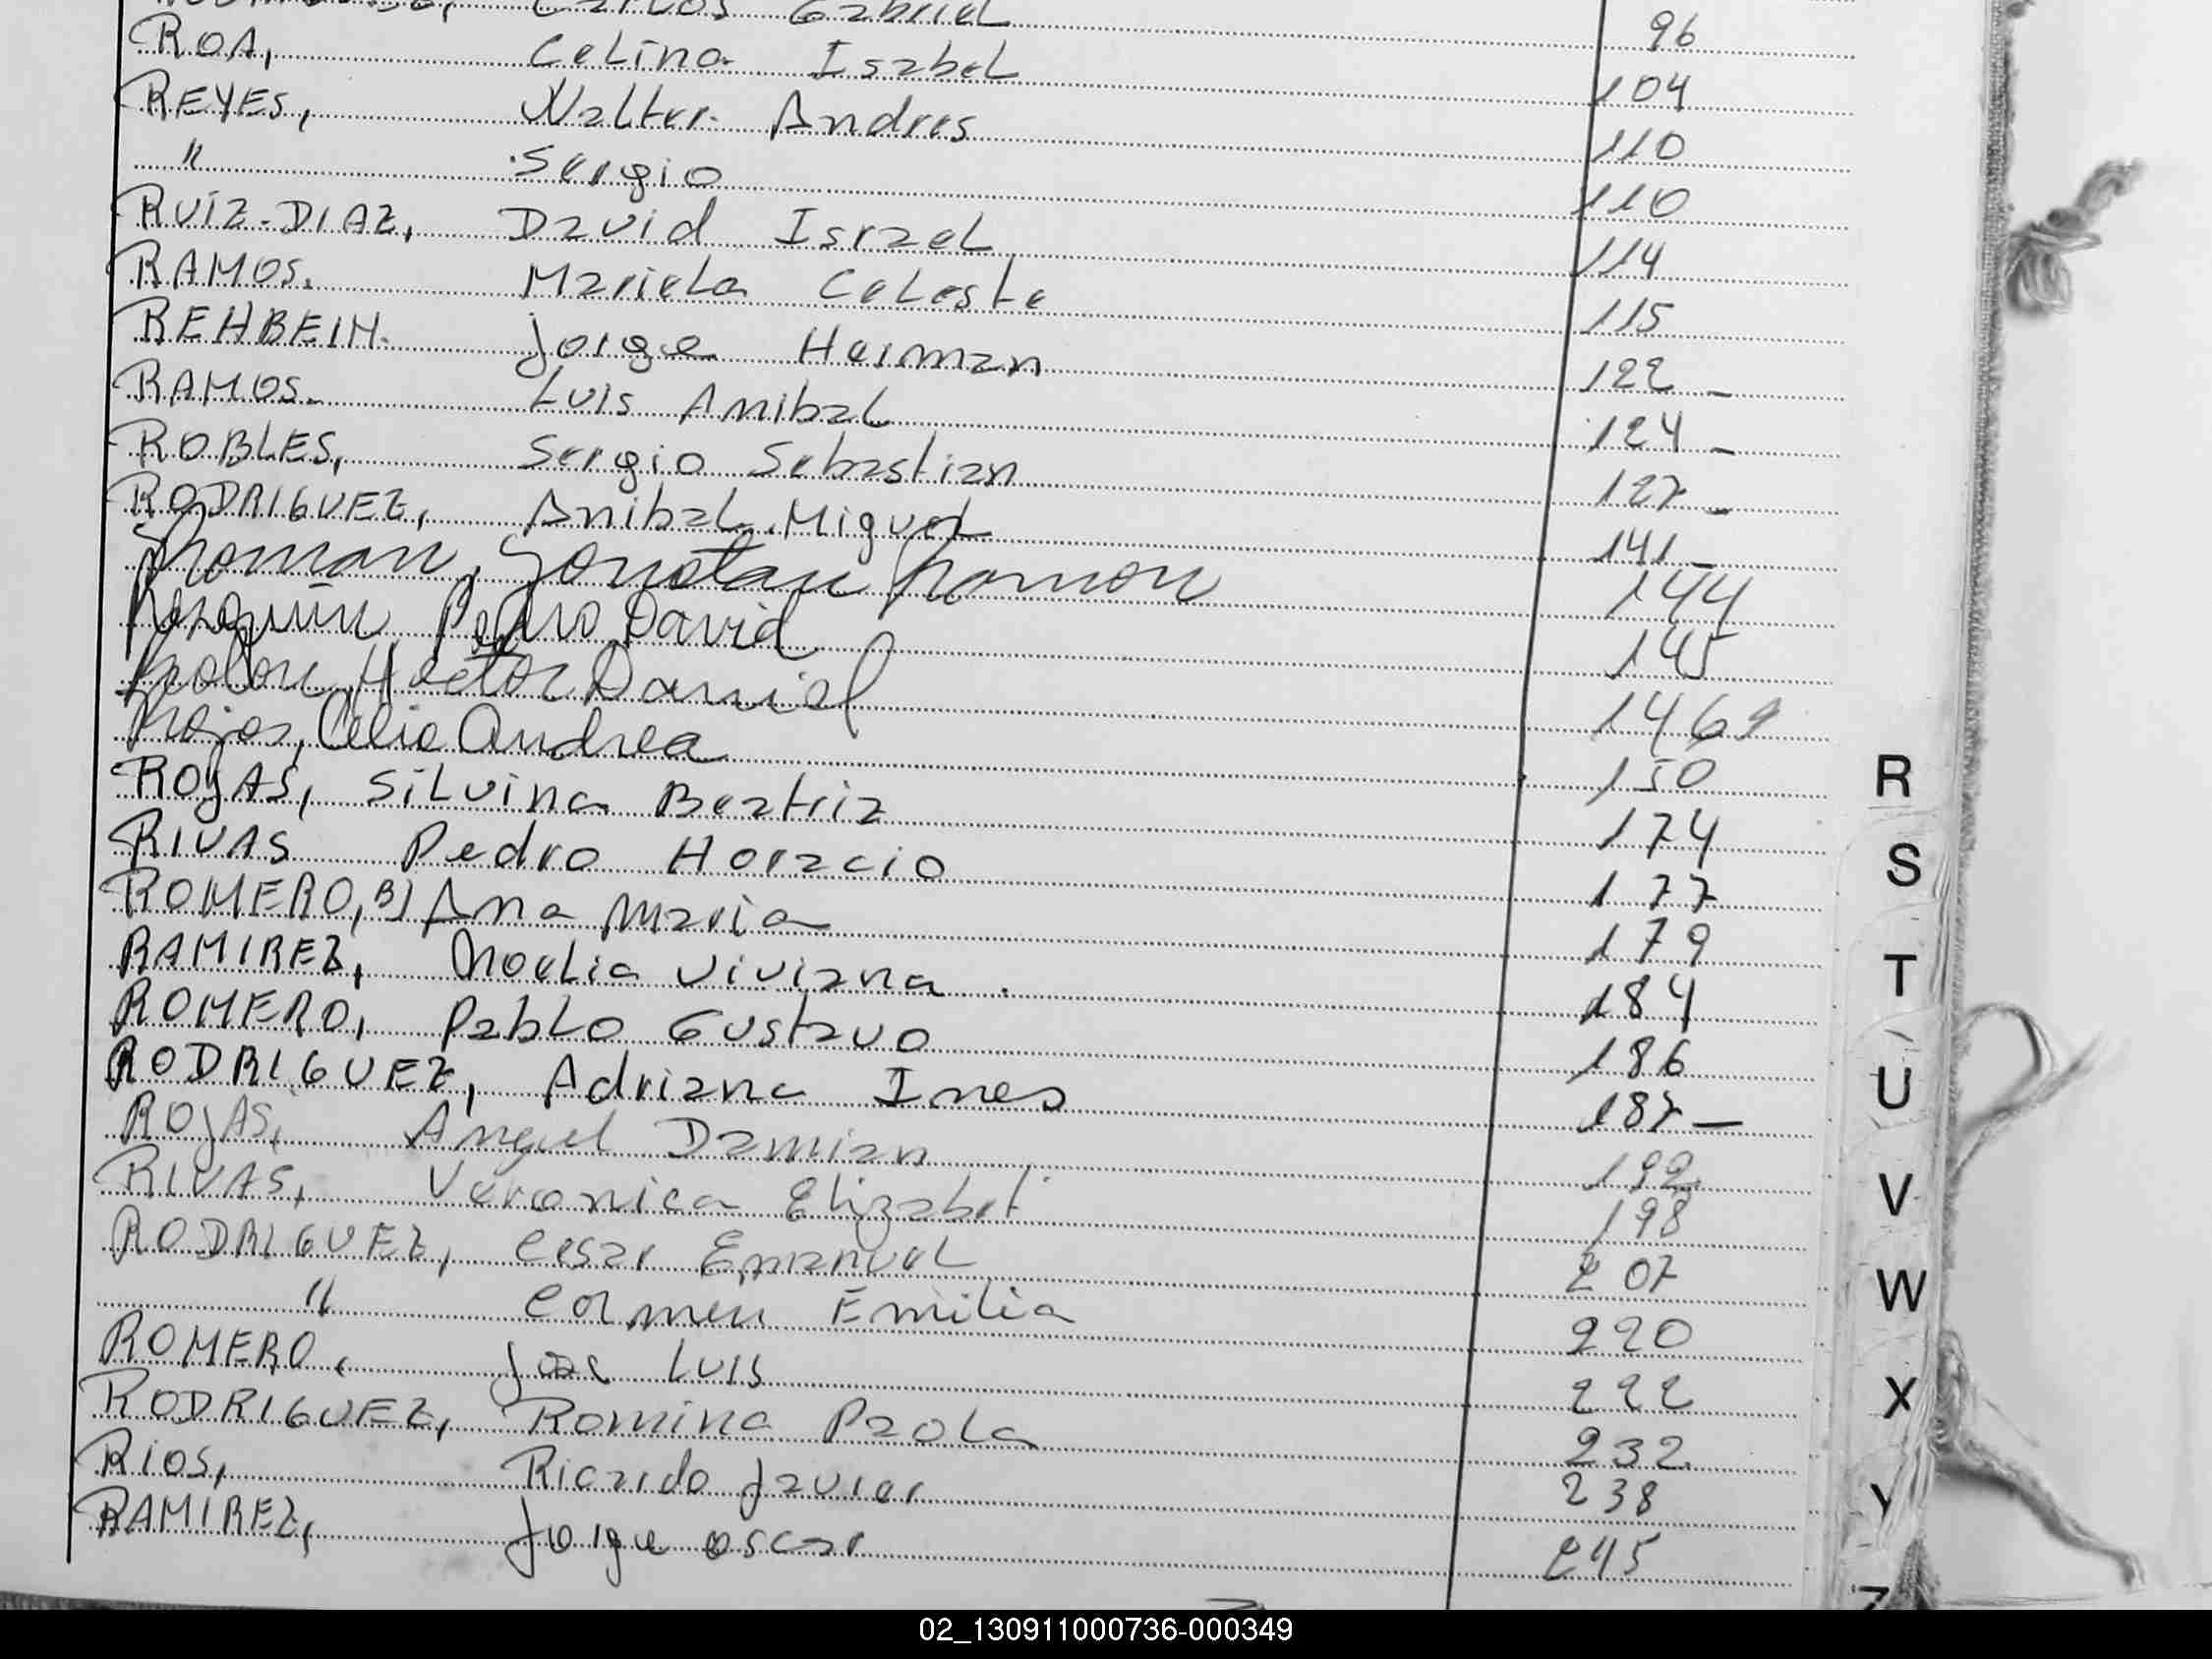 Carlos Gabriel 96
ROA, Celina Isabel 104
REYES, Walter Andres 110
" Sergio 110
RUIZ-DIAZ, David Israel 114
RAMOS. Mariela Celeste 115
REHBEIN. Jorge Herman 122 -
RAMOS. Luis Anibal 124 -
ROBLES, Sergio Sebastian 127 -
RODRIGUEZ, Anibal Miguel 141 -
Roman, Jonatan Ramon 144
Pedro David 145
Rolon, Hector Daniel
Rojas, Celia Andrea 150
ROJAS, Silvina Beatriz 174
RIVAS Pedro Horacio 177
ROMERO, B) Ana Maria 179
RAMIREZ, Noelia Viviana. 184
ROMERO, Pablo Gustavo 186
RODRIGUEZ, Adriana Ines 187 -
ROJAS, Angel Damian 192
RIVAS, Veronica Elizabet 198
RODRIGUEZ, Cesar Emanuel 207
" Carmen Emilia 220
ROMERO, Jose Luis 222
RODRIGUEZ, Romina Paola 232
RIOS, Ricardo Javier 238
RAMIREZ, Jorge Oscar 245
R
S
T
U
V
W
X
Y
Z
02_130911000736-000349